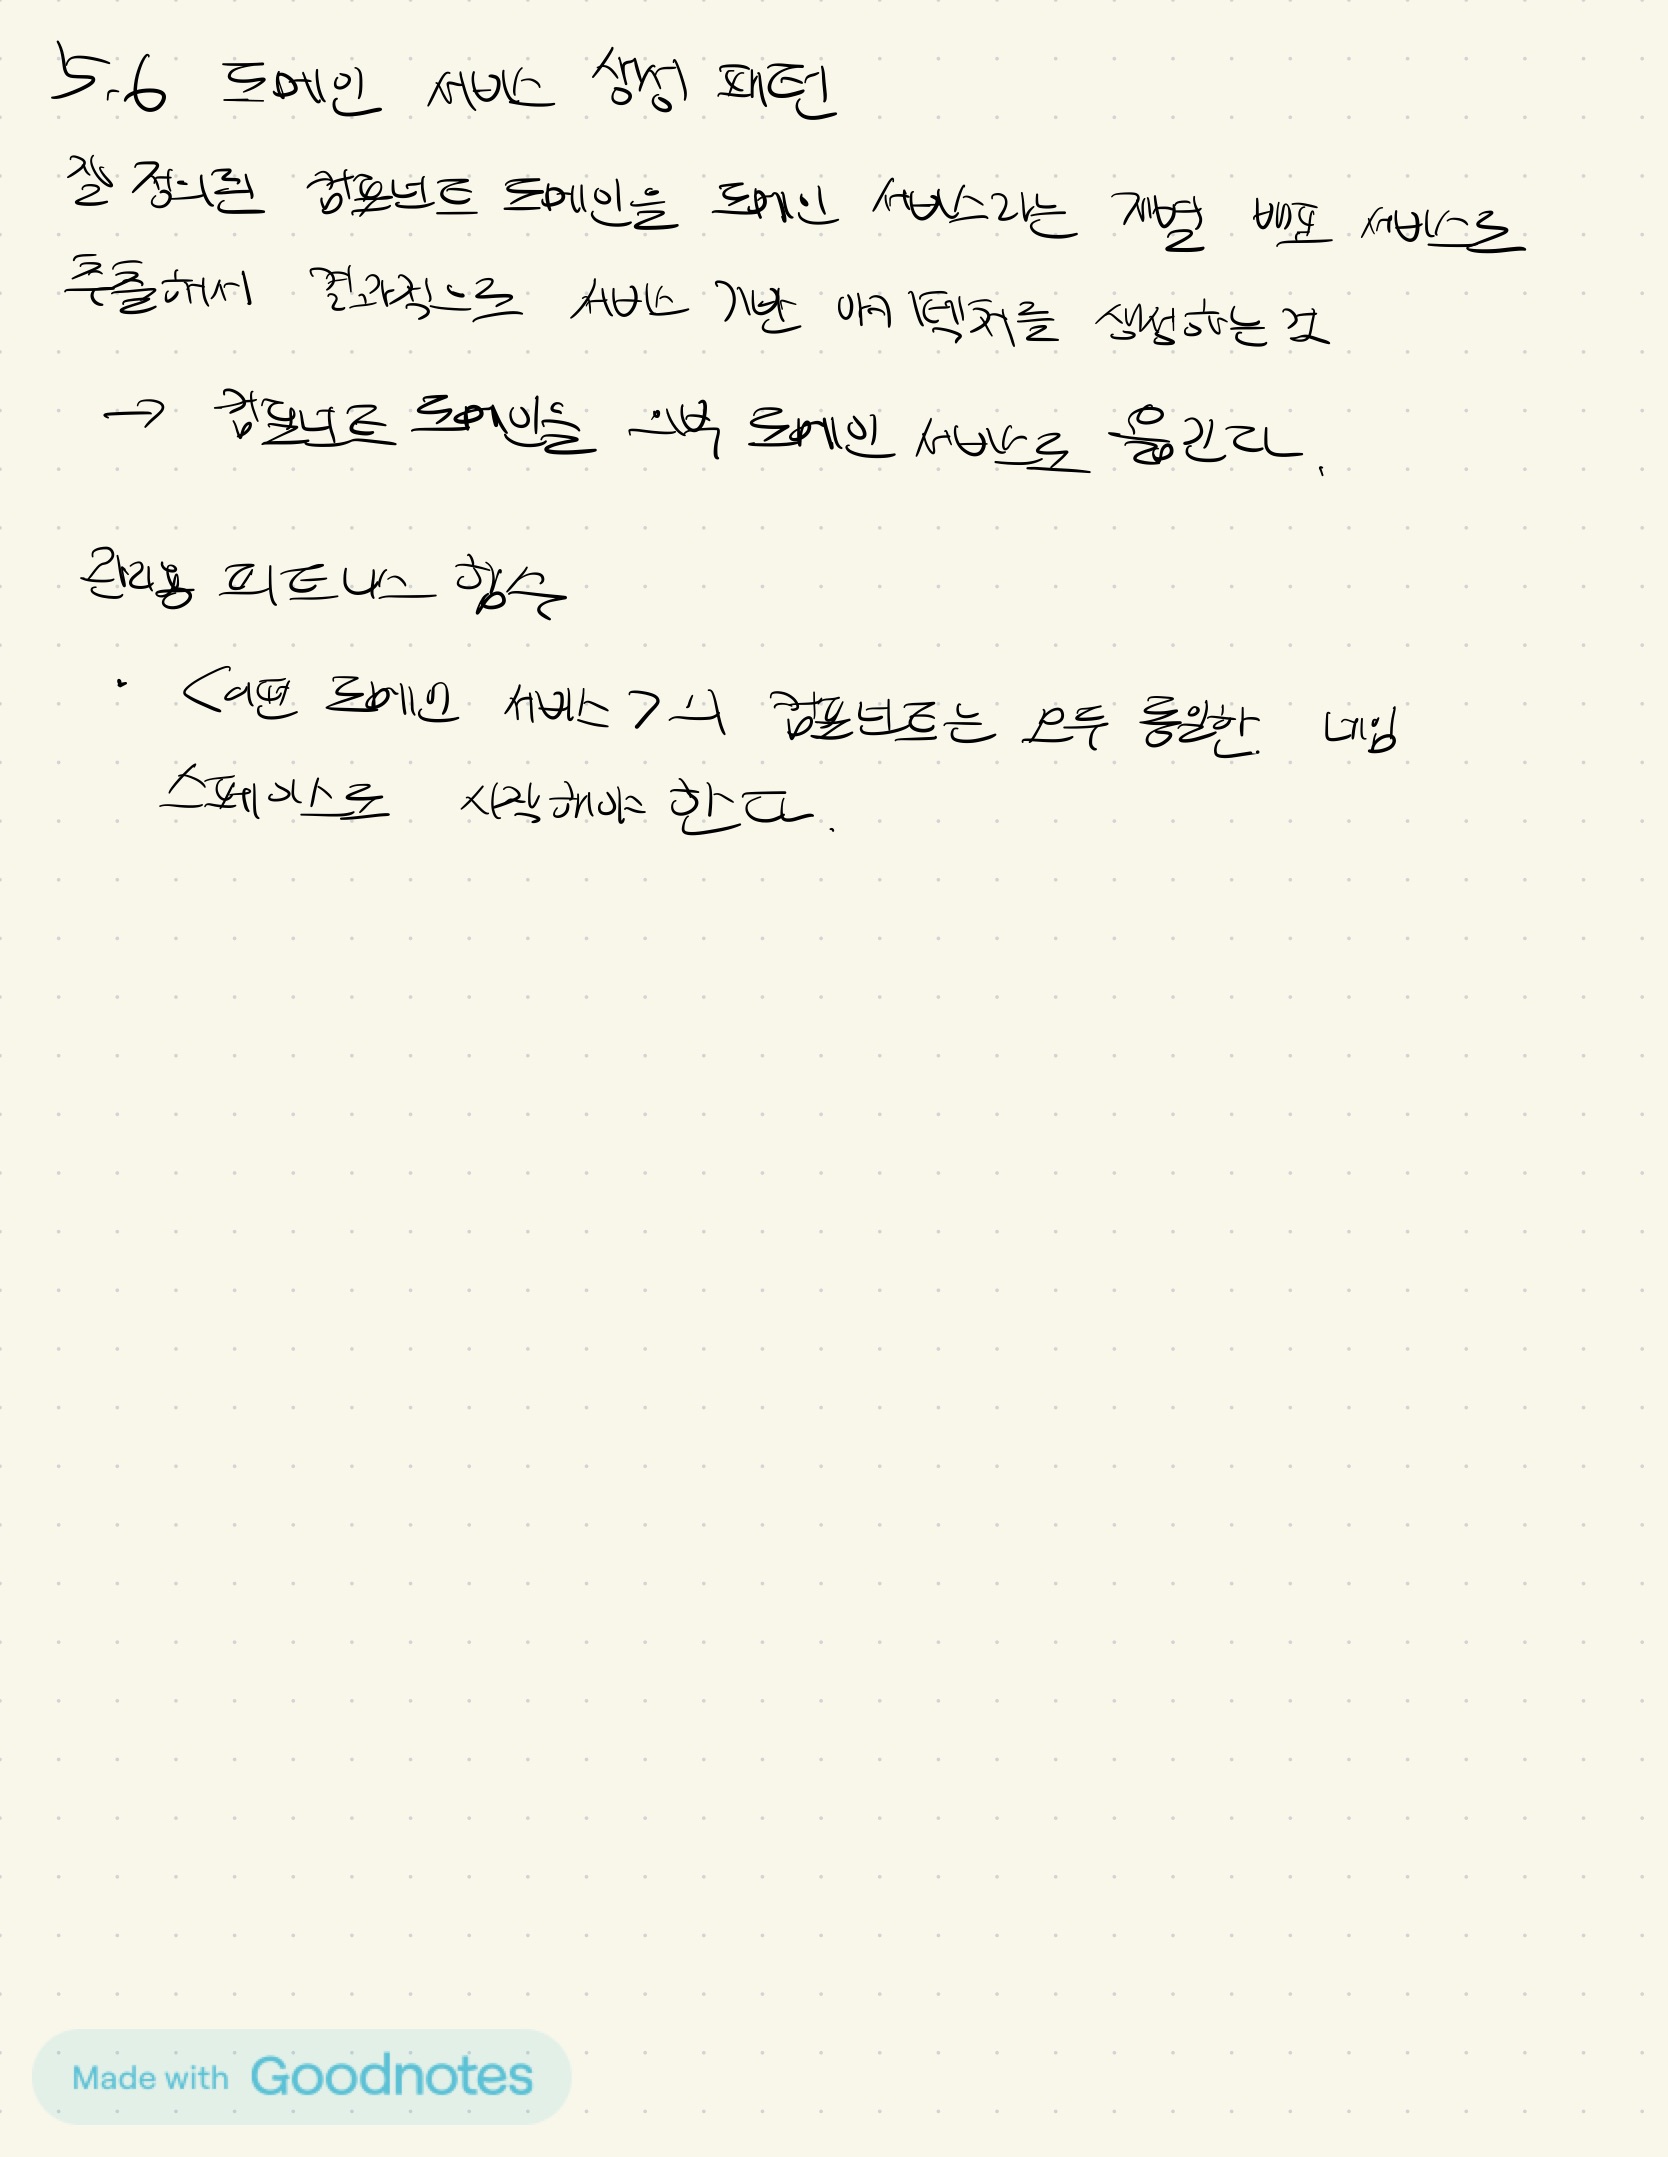 5.6 도메인 서비스 생성 패턴
잘 정의된 컴포넌트 도메인을 도메인 서비스라는 개별 배포 서비스로
추출해서 결과적으로 서비스 기반 아키텍처를 생성하는 것
→ 컴포넌트 도메인을 외부 도메인 서비스로 옮긴다.
관리용 피트니스 함수
· <어떤 도메인 서비스>의 컴포넌트는 모두 동일한 네임
스페이스로 시작해야 한다.
Made with Goodnotes